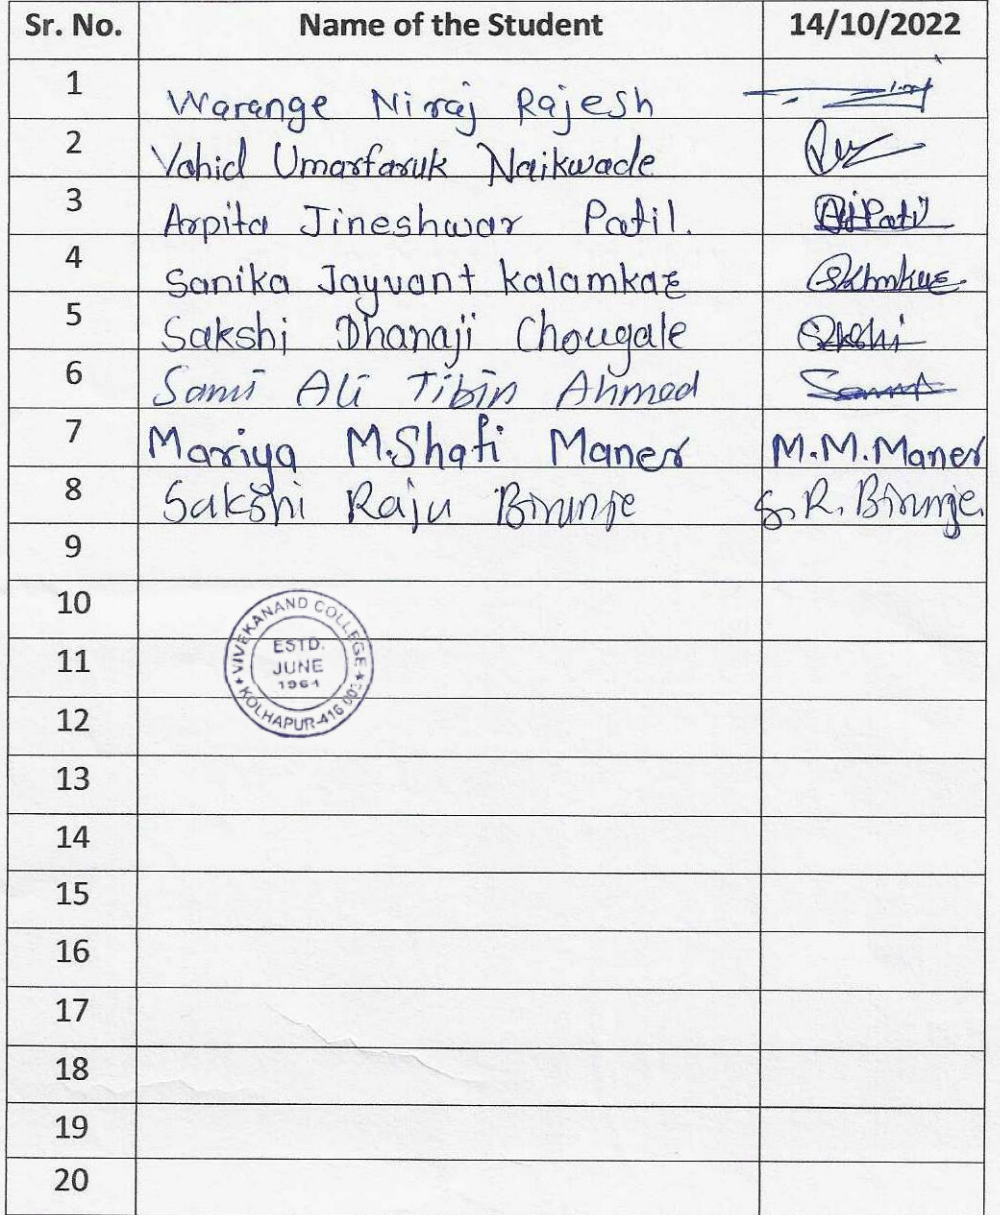 Sr. No. Name of the Student 14/10/2022
1 Warange Niraj Rajesh
2 Vahid Umarfaruk Naikwade
3 Arpita Jineshwar Patil. AJPatil
4 Sanika Jayvant Kalamkar
5 Sakshi Dhanaji Chougale
6 Sami Ali Tibin Ahmed
7 Mariya M.Shafi Maner M.M.Maner
8 Sakshi Raju Birunje S.R. Birunje.
9
10
11
12
13
14
15
16
17
18
19
20
VIVEKANAND COLLEGE
ESTD.
JUNE
1964
KOLHAPUR-416 003